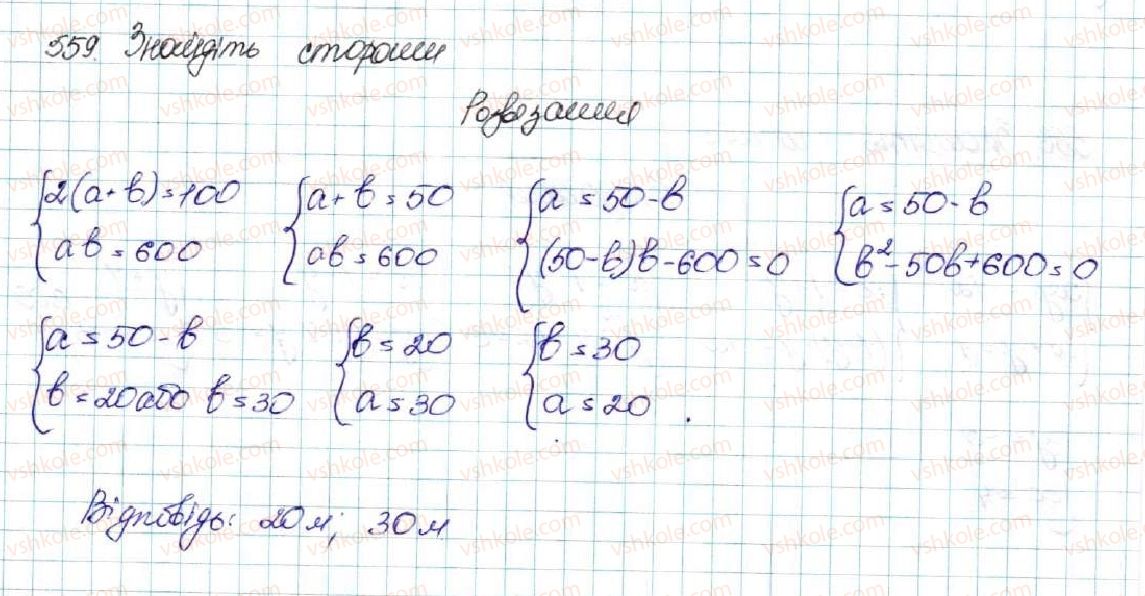 559. Знайдіть сторони
Розв'язання
{2(a+b)=100 {a+b=50 {a=50-b {a=50-b
{ab=600 {ab=600 {(50-b)b-600=0 {b²-50b+600=0
{a=50-b {b=20 {b=30
{b=20 або b=30 {a=30 {a=20.
Відповідь: 20 м; 30 м
vshkole.com